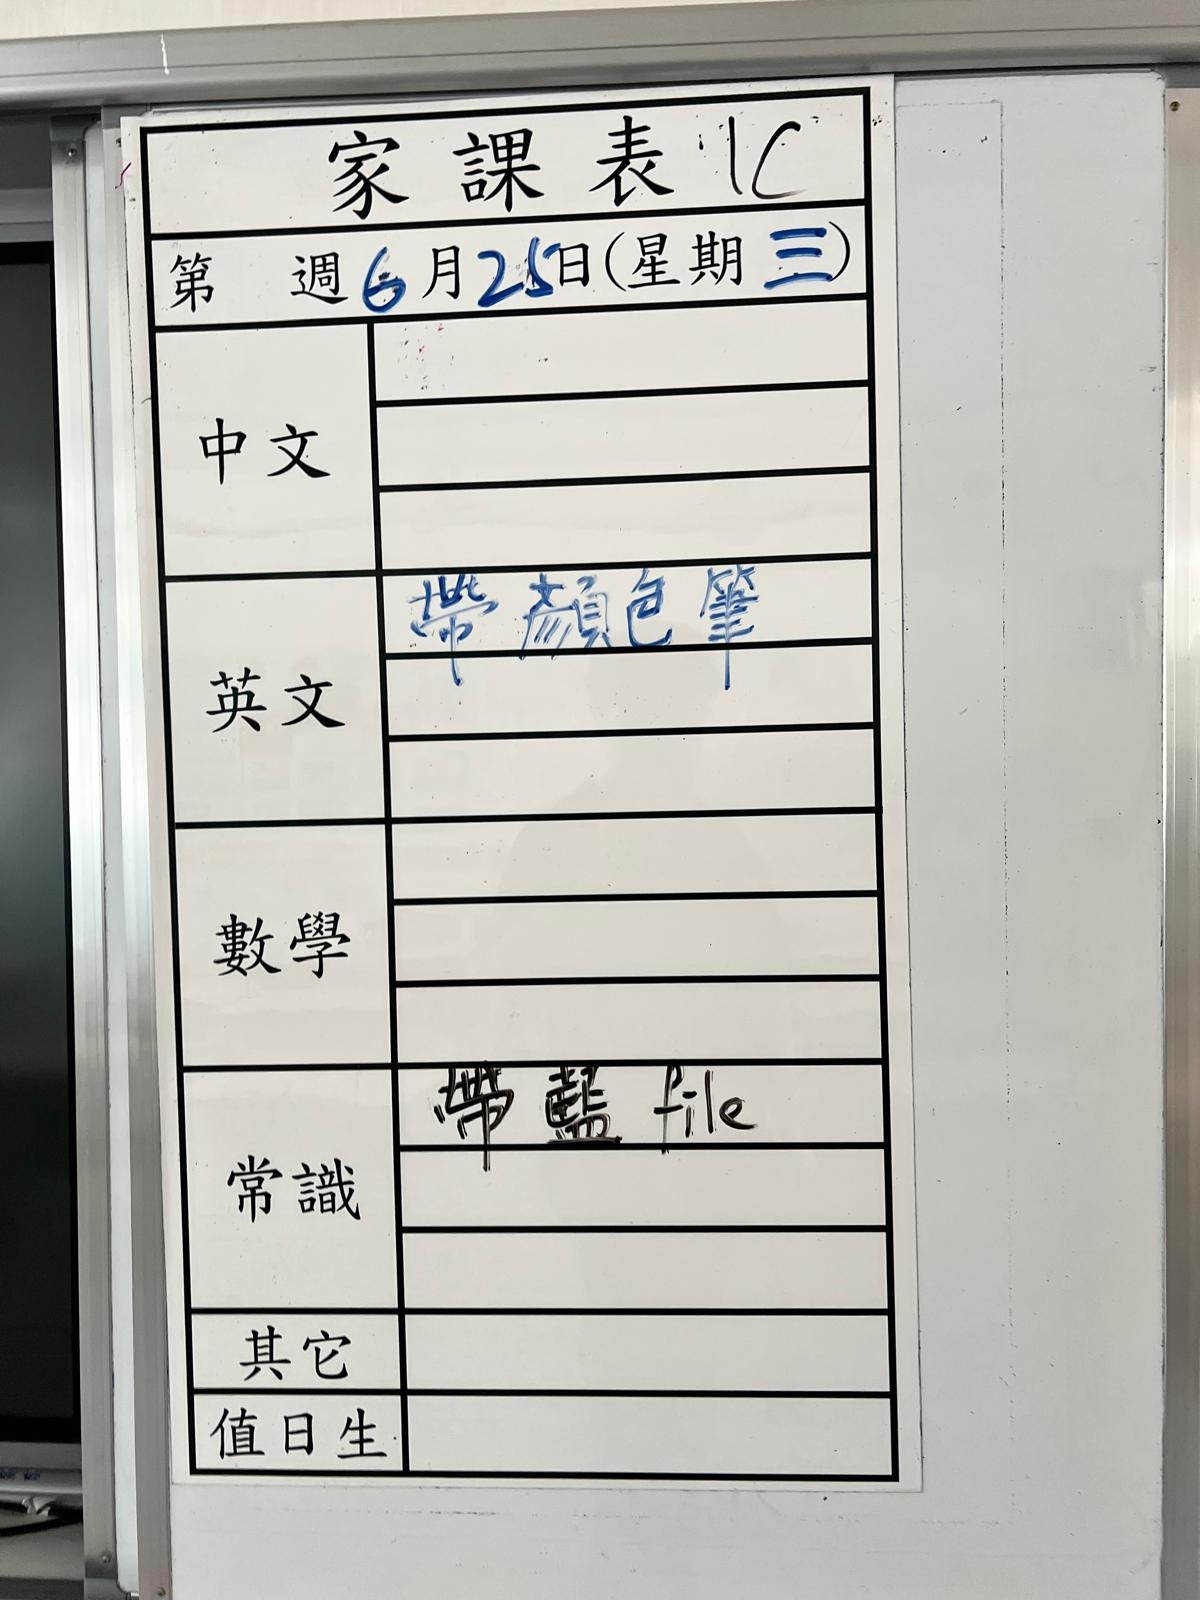 家課表 1C
第 週 6月25日(星期三)
中文
英文
帶顏色筆
數學
常識
帶藍 file
其它
值日生